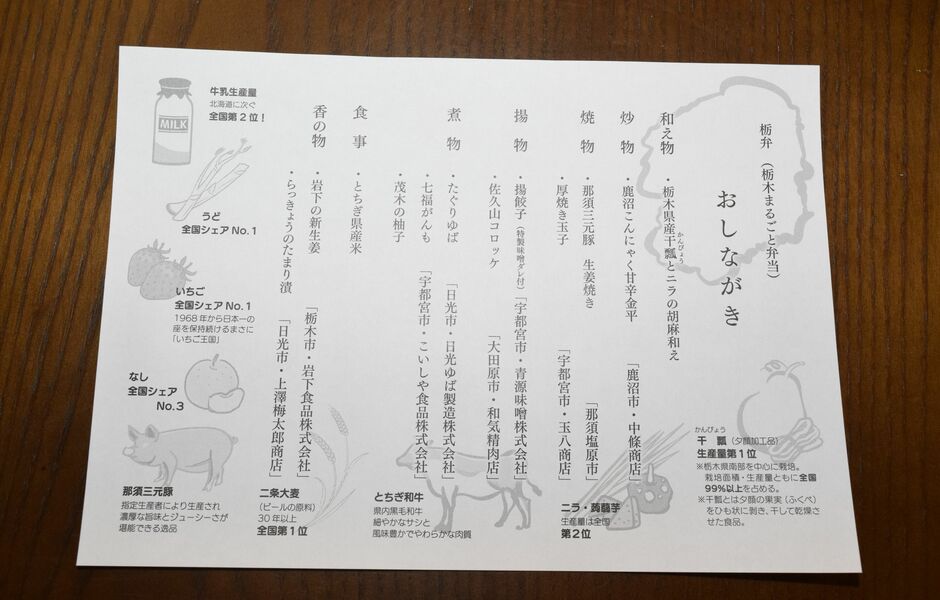 栃弁（栃木まるごと弁当）
おしながき
和え物
・栃木県産干瓢とニラの胡麻和え
かんぴょう
炒物
・鹿沼こんにゃく甘辛金平
「鹿沼市・中條商店」
焼物
・那須三元豚　生姜焼き
「那須塩原市」
・厚焼き玉子
「宇都宮市・玉八商店」
揚物
・揚餃子（特製味噌ダレ付）「宇都宮市・青源味噌株式会社」
・佐久山コロッケ
「大田原市・和気精肉店」
煮物
・たぐりゆば
「日光市・日光ゆば製造株式会社」
・七福がんも
「宇都宮市・こいしや食品株式会社」
・茂木の柚子
食事
・とちぎ県産米
香の物
・岩下の新生姜
「栃木市・岩下食品株式会社」
・らっきょうのたまり漬
「日光市・上澤梅太郎商店」
牛乳生産量
北海道に次ぐ
全国第2位！
MILK
うど
全国シェア No.1
いちご
全国シェア No.1
1968年から日本一の
座を保持続けるまさに
「いちご王国」
なし
全国シェア
No.3
那須三元豚
指定生産者により生産され
濃厚な旨味とジューシーさが
堪能できる逸品
二条大麦
（ビールの原料）
30年以上
全国第1位
とちぎ和牛
県内黒毛和牛
細やかなサシと
風味豊かでやわらかな肉質
ニラ・蒟蒻芋
生産量は全国
第2位
かんぴょう
干瓢（夕顔加工品）
生産量第1位
※栃木県南部を中心に栽培。
栽培面積・生産量ともに全国
99%以上を占める。
※干瓢とは夕顔の果実（ふくべ）
をひも状に剥き、干して乾燥さ
せた食品。